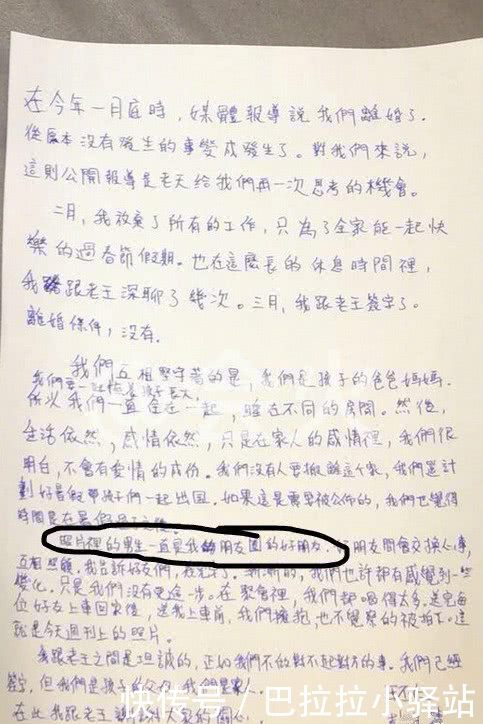 在今年一月底時，媒體報導說我們離婚了.
從原本沒有發生的事變成發生了。對我們來說，
這則公開報導是老天給我們再一次思考的機會。
二月，我放棄了所有的工作，只為了全家能一起快
樂的過春節假期。也在這麼長的休息時間裡，
我跟老王深聊了幾次。三月，我跟老王簽字了。
離婚條件，沒有.
我們互相堅守著的是，我們是孩子的爸爸媽媽.
我們要一起陪著孩子長大，
所以我們一直住在一起，睡在不同的房間。然後，
生活依然，感情依然，只是在家人的感情裡，我們很
明白，不會有愛情的成份。我們沒有人要搬離這個家，我們是計
劃好暑假帶孩子們一起出國。如果這是需要被公佈的，我們也覺得
時間是在暑假之後。
照片裡的男生一直是我的朋友圈的好朋友.朋友間會交換心事，
互相照顧。我告訴好友們，漸漸的，我們也許都有感覺到一些
變化。只是我們沒有更進一步。在聚會裡，我們都喝得太多。送完每
位好友上車回家後，送我上車前，我們擁抱，也不覺累的被拍下。這
就是今天週刊上的照片。
我跟老王之間是坦誠的，正如我們不做對不起對方的事。我們已經
簽字，但我們是孩子的父母，我們是家人.
在此我跟老王謝謝大家的關心。
快传号/巴拉拉小驿站